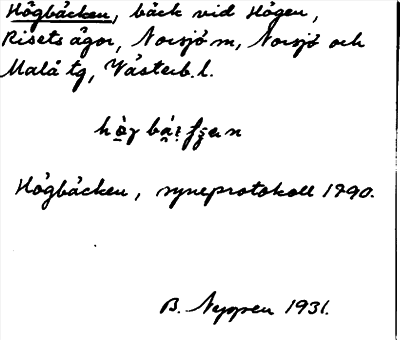 Högbäcken, bäck vid Högen,
Risets ägor, Norsjö sn, Norsjö och
Malå tg, Västerb. l.
Högbäcken, syneprotokoll 1790.
B. Nyppen 1931.